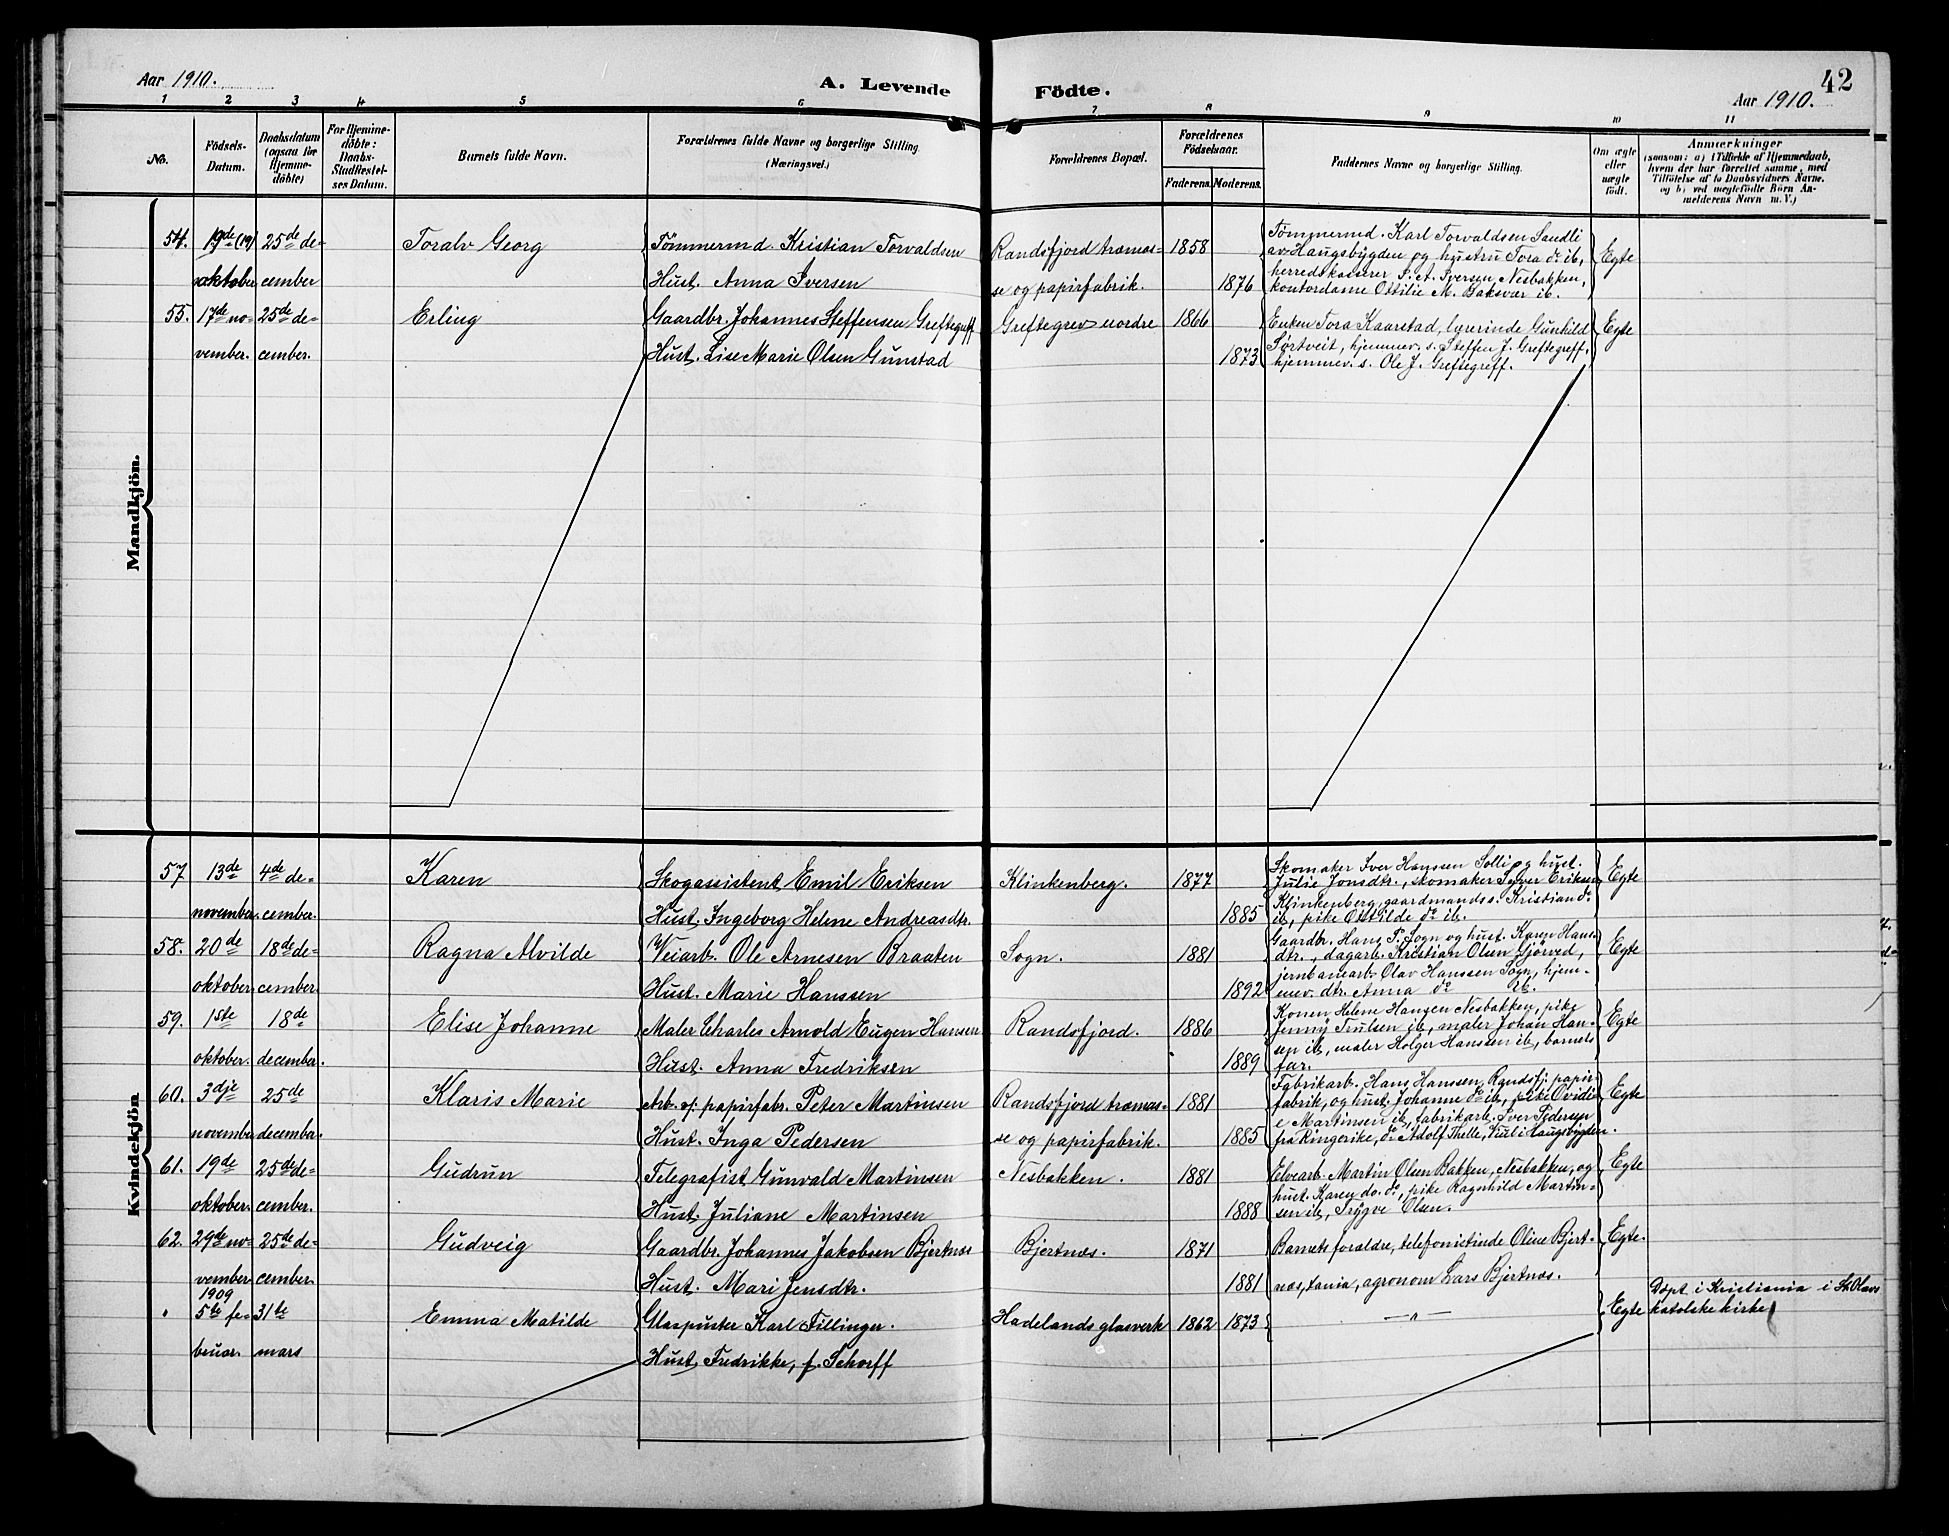 42
Aar 1910.
A. Levende Födte.
Aar 1910.
1 2 3 4 5 6 7 8 9 10 11
No.
Födsels-
Datum.
Daabsdatum
(ogsaa for
Hjemme-
döbte)
For Hjemme-
döbte:
Daabs-
Stadfæstel-
ses Datum.
Barnets fulde Navn.
Forældrenes fulde Navne og borgerlige Stilling
(Næringsvei.)
Forældrenes Bopæl.
Forældrenes
Födselsaar.
Faderens. Moderens.
Faddernes Navne og borgerlige Stilling.
Om ægte
eller
uægte
födt.
Anmærkninger
(saasom: a) i Tilfælde af Hjemmedaab,
hvem der har forrettet samme, med
Tilföielse af to Daabsvidners Navne.
og b) ved uægtefödte Börn An-
melderens Navn m. V.)
Mandkjön.
54. 19de (19) 25de de-
oktober cember
Toralv Georg
Tömmermd. Kristian Torvaldsen
Hust. Anna Iversen
Randsfjord træmas-
se og papirfabrik.
1858
1876
Tömmermd. Karl Torvaldsen Sandli
av Haugsbygden og hustru Tora do ib,
herredskasserer P. A. Iversen, Nesbakken,
kontordame Ottilie M. Baksvær ib.
Egte
55. 17de no- 25de de-
vember. cember.
Erling
Gaardbr. Johannes Steffensen Greftegreff
Hust. Lise Marie Olsen Gunstad
Greftegrev nordre
1866
1873
Enken Tora Kaarstad, lærerinde Gunhild
Sørtveit, hjemmev. s. Steffen J. Greftegreff,
hjemmev. s. Ole J. Greftegreff.
Egte
Kvindekjön
57 13de 4de de-
november. cember.
Karen
Skogassistent Emil Eriksen
Hust. Ingeborg Helene Andreasdtr.
Klinkenberg.
1877
1885
Skomaker Iver Hanssen Solli og hust.
Julie Jonsdtr., skomaker Syver Eriksen
Klinkenberg, gaardmands s. Kristian do
ib, pike Ottilde do ib.
Egte
58. 20de 18de de-
oktober cember.
Ragna Alvilde
Veiarb. Ole Arnesen Braaten
Hust. Marie Hanssen
Sogn.
1881
1892
Gaardbr. Hans P. Sogn og hust. Karen Hans-
dtr., dagarb. Kristian Olsen Gjörved,
jernbanearb. Olav Hanssen Sogn, hjem-
mev. dtr. Anna do ib.
Egte
59. 1ste 18de
oktober. december.
Elise Johanne
Maler Charles Arnold Eugen Hansen
Hust. Anna Fredriksen
Randsfjord.
1886
1889
Konen Helene Hansen Nesbakken, pike
Jenny Trulsen ib, maler Johan Han-
sen ib, maler Holger Hanssen ib, barnets
far.
Egte
60. 3dje 25de
november december.
Klaris Marie
Arb. v/: papirfabr. Peter Martinsen
Hust. Inga Pedersen
Randsfjord træmas-
se og papirfabrik.
1881
1885
Fabrikarb. Hans Hanssen, Randsfj: papir-
fabrik, og hust. Johanne do ib, pike Ovidi-
e Martinsen ib, fabrikarb. Iver Pedersen
fra Ringerike, do Adolf Thelle, Haugsbygden.
Egte
61. 19de 25de de-
oktober. cember.
Gudrun
Telegrafist Gunvald Martinsen
Hust. Juliane Martinsen
Nesbakken.
1881
1888
Elvearb. Martin Olsen Bakken, Nesbakken, og
hust. Karen do. do, pike Ragnhild Martin-
sen ib, Trygve Olsen.
Egte
62. 29de no- 25de de-
vember cember.
Gudveig
Gaardbr. Johannes Jakobsen Bjertnæs
Hust. Mari Jensdtr.
Bjertnæs.
1871
1881
Barnets foraldre, telefonistinde Oline Bjert-
næs, tania, agronom Lars Bjertnæs.
Egte.
1909
" 5te fe- 31te
beuar. mars
Emma Matilde
Glaspuster Karl Fillinger.
Hust. Fredrikke, f. Schorff
Hadelands glasverk
1862 1873
— " —
Egte
Döpt i Kristiania i St. Olavs
katolske kirke